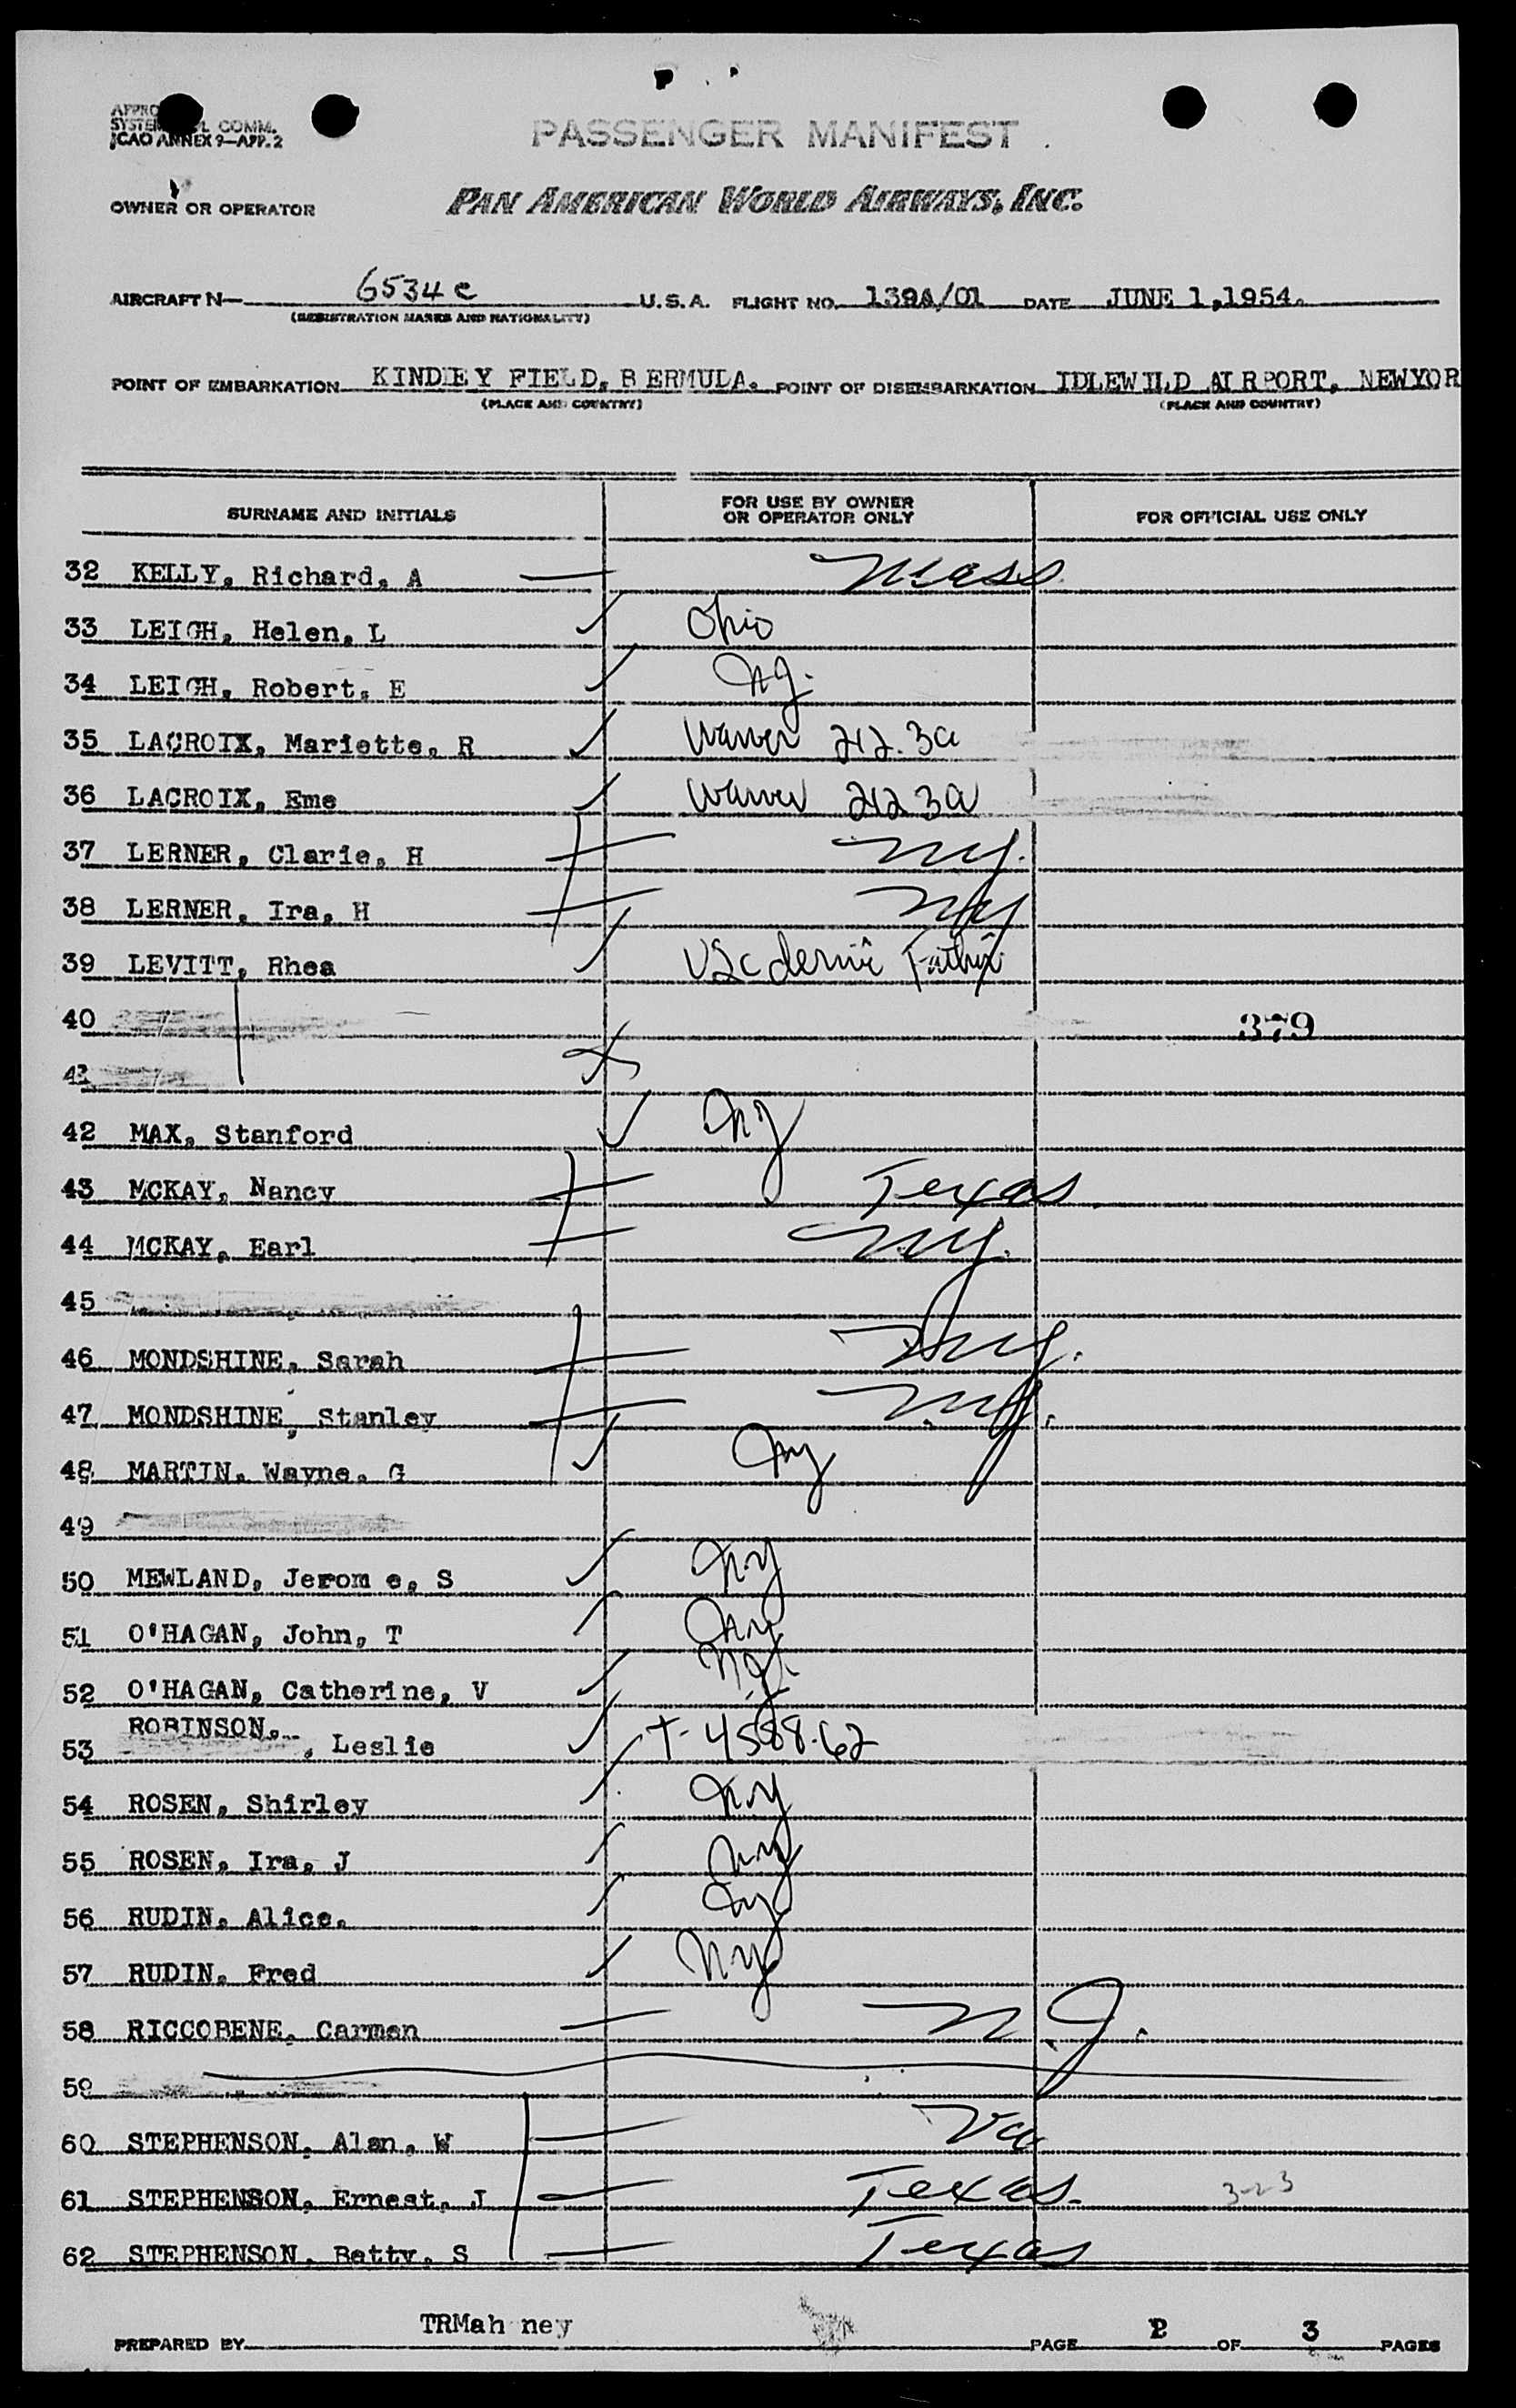 SYSTEM COMM.
ICAO ANNEX 9—APP. 2
PASSENGER MANIFEST
OWNER OR OPERATOR PAN AMERICAN WORLD AIRWAYS, INC.
AIRCRAFT N— 6534C U.S.A. FLIGHT NO. 139A/01 DATE JUNE 1,1954.
(REGISTRATION MARKS AND NATIONALITY)
POINT OF EMBARKATION KINDLEY FIELD, BERMUDA. POINT OF DISEMBARKATION IDLEWILD AIRPORT, NEWYOR
(PLACE AND COUNTRY) (PLACE AND COUNTRY)
SURNAME AND INITIALS FOR USE BY OWNER OR OPERATOR ONLY FOR OFFICIAL USE ONLY
32 KELLY, Richard, A Mass.
33 LEIGH, Helen, L Ohio
34 LEIGH, Robert, E
35 LACROIX, Mariette, R Waiver 212.3a
36 LACROIX, Eme Waiver 212 3a
37 LERNER, Clarie, H NY.
38 LERNER, Ira, H NY
39 LEVITT, Rhea USC
40 379
41
42 MAX, Stanford
43 MCKAY, Nancy Texas
44 MCKAY, Earl NY.
45
46 MONDSHINE, Sarah NY.
47 MONDSHINE, Stanley NY.
48 MARTIN, Wayne, G NY
49
50 MEWLAND, Jerom e, S NY
51 O'HAGAN, John, T NY
52 O'HAGAN, Catherine, V NY
53 ROBINSON, , Leslie T-4588-62
54 ROSEN, Shirley NY
55 ROSEN, Ira, J NY
56 RUDIN, Alice, NY
57 RUDIN, Fred NY
58 RICCOBENE, Carmen N.J.
59
60 STEPHENSON, Alan, W Va
61 STEPHENSON, Ernest, J Texas. 3-23
62 STEPHENSON, Betty, S Texas
PREPARED BY TRMah ney PAGE 2 OF 3 PAGES